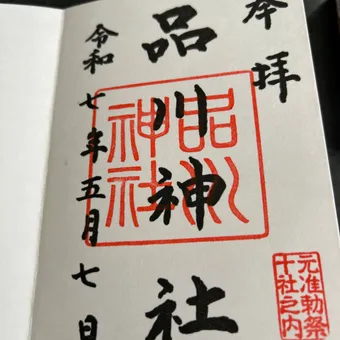 奉拝
品川神社
品川神社
令和七年五月七日
元准勅祭
十社之内